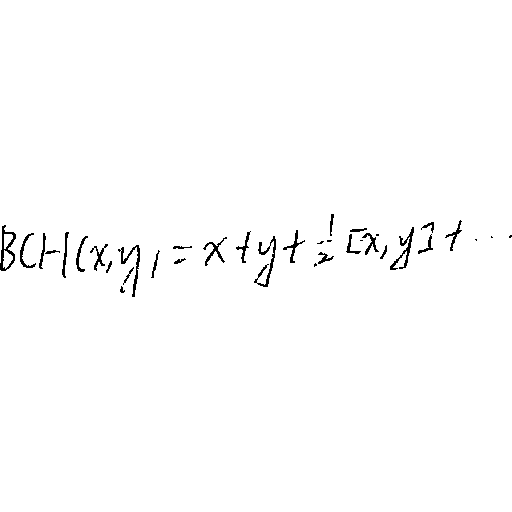 BCH(x,y) = x+y+\frac{1}{2}[x,y]+...